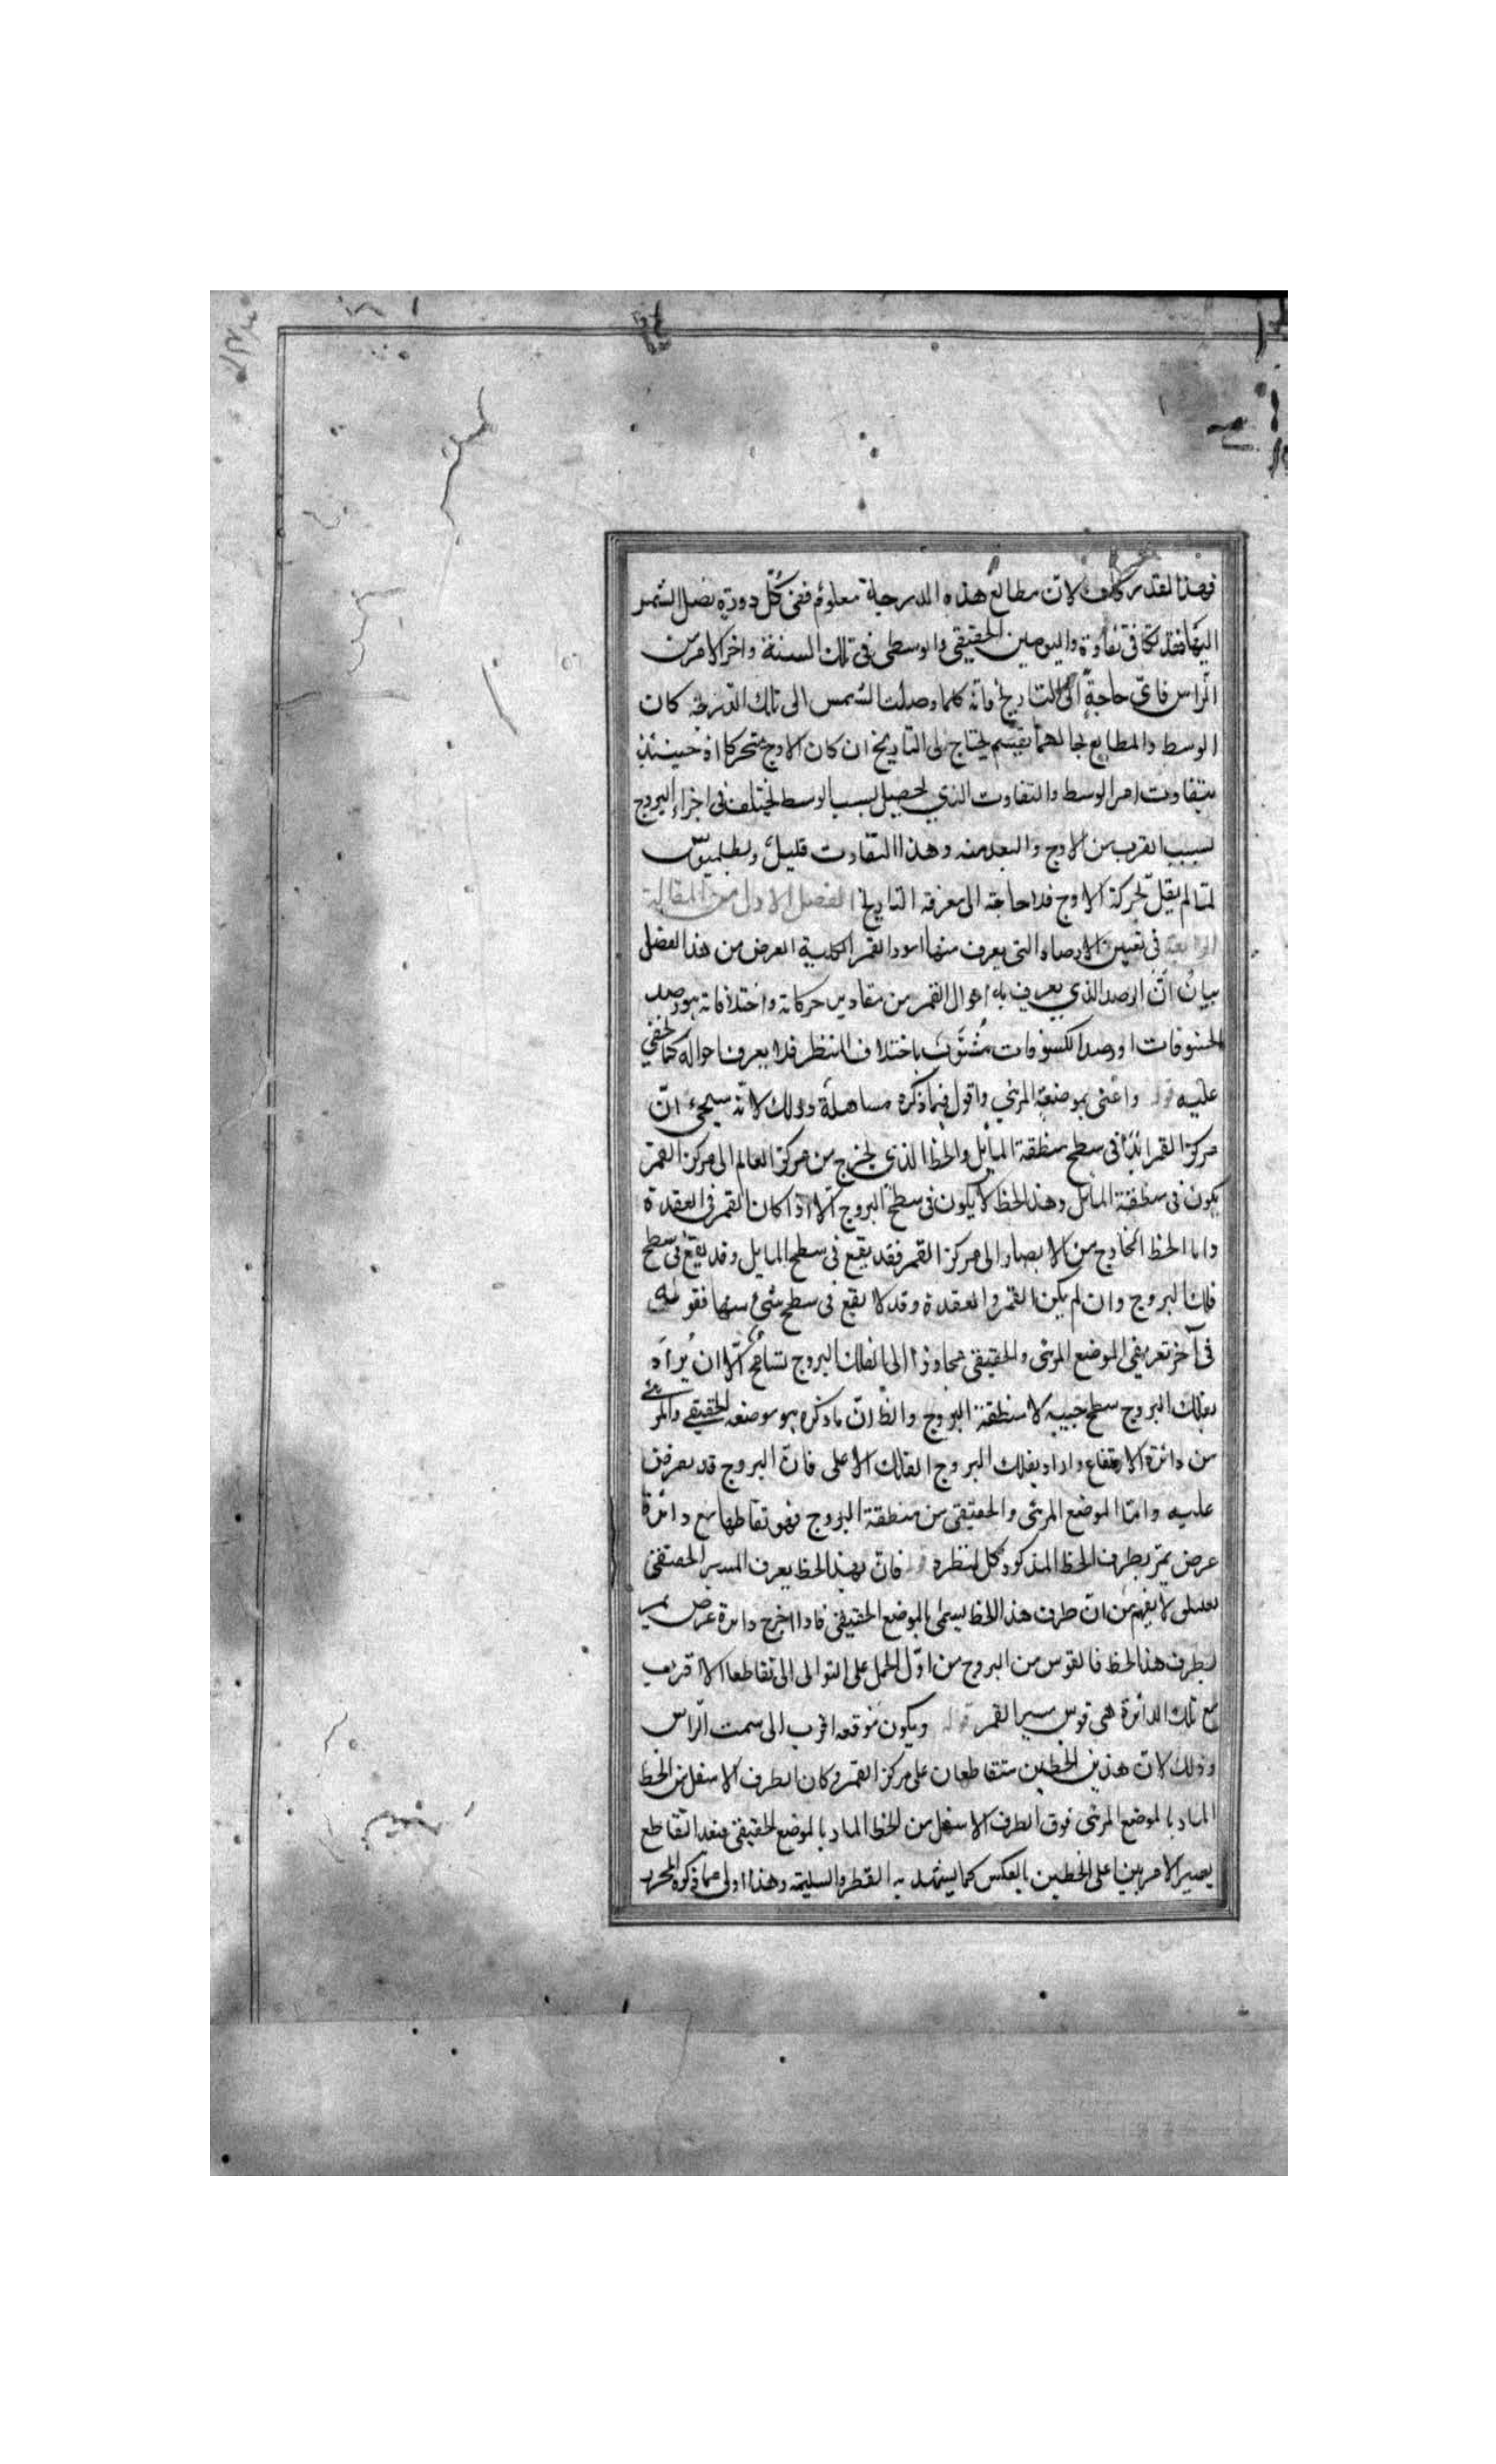 فهذا القدر كاف لان مطالع هذه الدرجة معلومة ففي كل دورة يصل الشمس
اليها فقد تفاوت واليومين الحقيقي والوسطى فى تلك السنة واخر الامر من
الراس فاى حاجة الى التاريخ فانه كلما وصلت الشمس الى تلك الدرجة كان
الوسط والمطالع بحالهما نعم يحتاج الى التاريخ ان كان الاوج متحركا اذ حينئذ
يتفاوت امر الوسط والتفاوت الذي يحصل بسبب الوسط يختلف فى اجزاء البروج
بسبب القرب من الاوج والبعد منه وهذا التفاوت قليل وبطلميوس
لما لم يقل بحركة الاوج فلا حاجة الى معرفة التاريخ الفصل الاول من المقالة
الرابعة فى تعيين الارصاد التى يعرف منها امور القمر الكلية الغرض من هذا الفصل
بيان ان الرصد الذي يعرف به احوال القمر من مقادير حركاته واختلافاته هو رصد
الخسوفات اذ رصد الكسوفات مشوب باختلاف المنظر فلا يعرف احواله كما خفي
عليه قوله واعنى بموضعه المرئي واقول فيما ذكره مساهلة وذلك لانه سيجئ ان
مركز القمر ابدا فى سطح منطقة المايل والخط الذي يخرج من مركز العالم الى مركز القمر
يكون فى منطقة المايل وهذا الخط لا يكون فى سطح البروج الا اذا كان القمر فى العقدة
واما الخط الخارج من الابصار الى مركز القمر فقد يقع فى سطح المايل وقد يقع فى سطح
فلك البروج وان لم يكن القمر فى العقدة وقد لا يقع فى سطح شئ منها فقوله
فى آخر تعريفى الموضع المرئى والحقيقى محاوزا الى فلك البروج تسامح الا ان يراد
بفلك البروج سطح جيبه لا منطقة البروج والظ ان ما ذكره هو موضعه الحقيقي والمرئي
من دائرة الارتفاع واراد بفلك البروج الفلك الاعلى فان البروج قد يعرض
عليه واما الموضع المرئى والحقيقى من منطقة البروج فهو تقاطعها مع دائرة
عرض يمر بطرف الخط المذكور كل لنظره قوله فان بهذا الخط يعرف المسير الحقيقى
لا يفهم من ان طرف هذا الخط يسمى بالموضع الحقيقى فاذا اخرج دائرة عرض يمر
بطرف هذا الخط فالقوس من البروج من اول الحمل على التوالى الى تقاطعها الاقرب
مع تلك الدائرة هى قوس مسير القمر قوله ويكون موقعه اقرب الى سمت الراس
وذلك لان هذين الخطين متقاطعان على مركز القمر وكان الطرف الاسفل من الخط
المار بالموضع المرئى فوق الطرف الاسفل من الخط المار بالموضع الحقيقى فبعد التقاطع
يصير الامر بينا على الخطين بالعكس كما يشهد به الفطر السليمة وهذا اولى مما ذكره المحرر